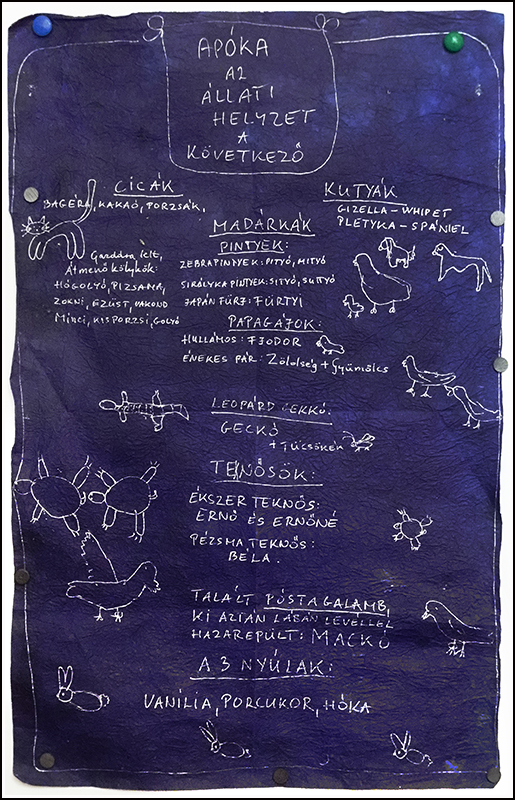 APÓKA
AZ
ÁLLATI
HELYZET
A
KÖVETKEZŐ
CICÁK
BAGÉRA, KAKAÓ, PORZSÁK,
Gazdára lelt,
Átmenő kölykök:
HÓGOLYÓ, PIZSAMA,
ZOKNI, EZÜST, VAKOND
Minci, KISPORZSI, GOLYÓ
KUTYÁK
GIZELLA – WHIPET
PLETYKA – SPÁNIEL
MADÁRKÁK
PINTYEK:
ZEBRAPINTYEK: PITYÓ, MITYÓ
SIRÁLYKA PINTYEK: SITYÓ, SUTTYÓ
JAPÁN FÜRJ: FÜRTYI
PAPAGÁJOK:
HULLÁMOS: FJODOR
ÉNEKES PÁR: Zöldség + Gyümölcs
LEOPÁRD GEKKÓ:
GECKÓ
+ TÜCSÖKÉK
TEKNŐSÖK:
ÉKSZER TEKNŐS:
ERNŐ ÉS ERNŐNÉ
PÉZSMA TEKNŐS:
BÉLA.
TALÁLT PÓSTAGALAMB,
KI AZTÁN LÁBÁN LEVÉLLEL
HAZAREPÜLT: MACKÓ
A 3 NYÚLAK:
VANÍLIA, PORCUKOR, HÓKA